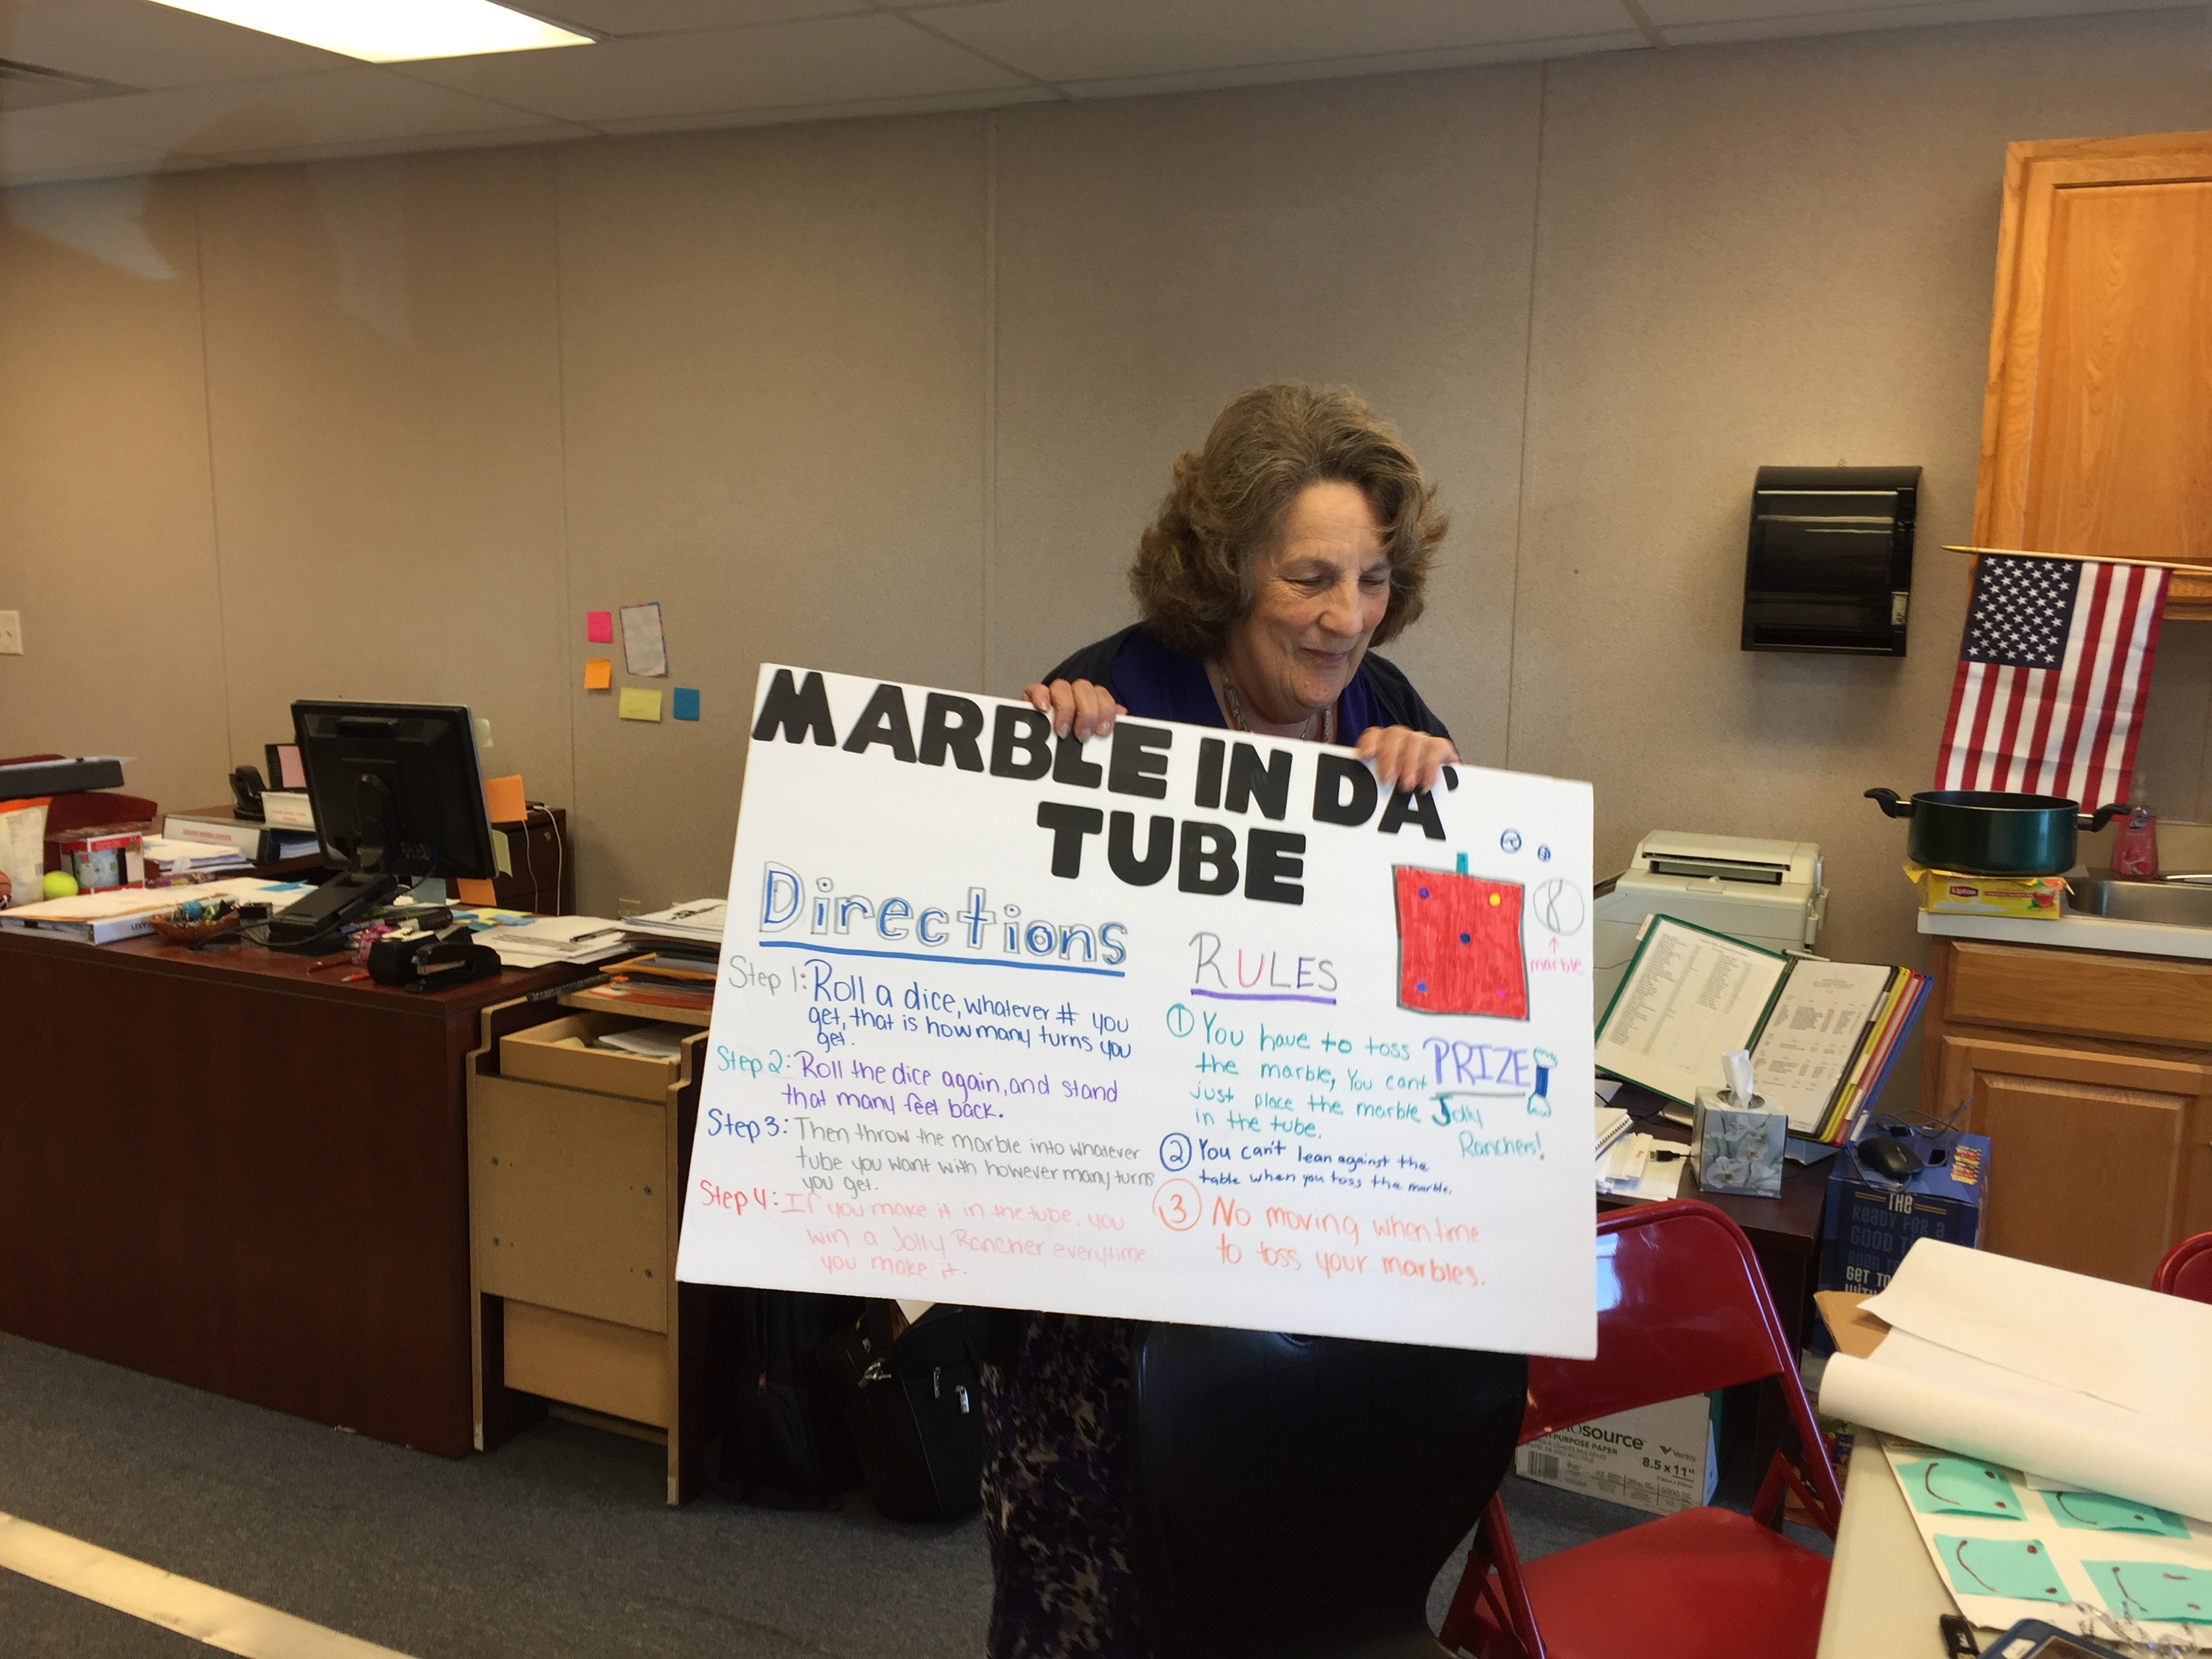 MARBLE IN DA'
TUBE
Directions
Step 1: Roll a dice, whatever # you
get, that is how many turns you
get.
Step 2: Roll the dice again, and stand
that many feet back.
Step 3: Then throw the marble into whatever
tube you want with however many turns
you get.
Step 4: If you make it in the tube, you
win a Jolly Rancher everytime
you make it.
RULES
1 You have to toss
the marble, You cant
just place the marble
in the tube.
2 You can't lean against the
table when you toss the marble.
3 No moving when time
to toss your marbles.
marble
PRIZE
Jolly
Ranchers!
Lipton
THE
READY FOR A
GOOD
GET TO
source
PURPOSE PAPER
8.5 x 11"